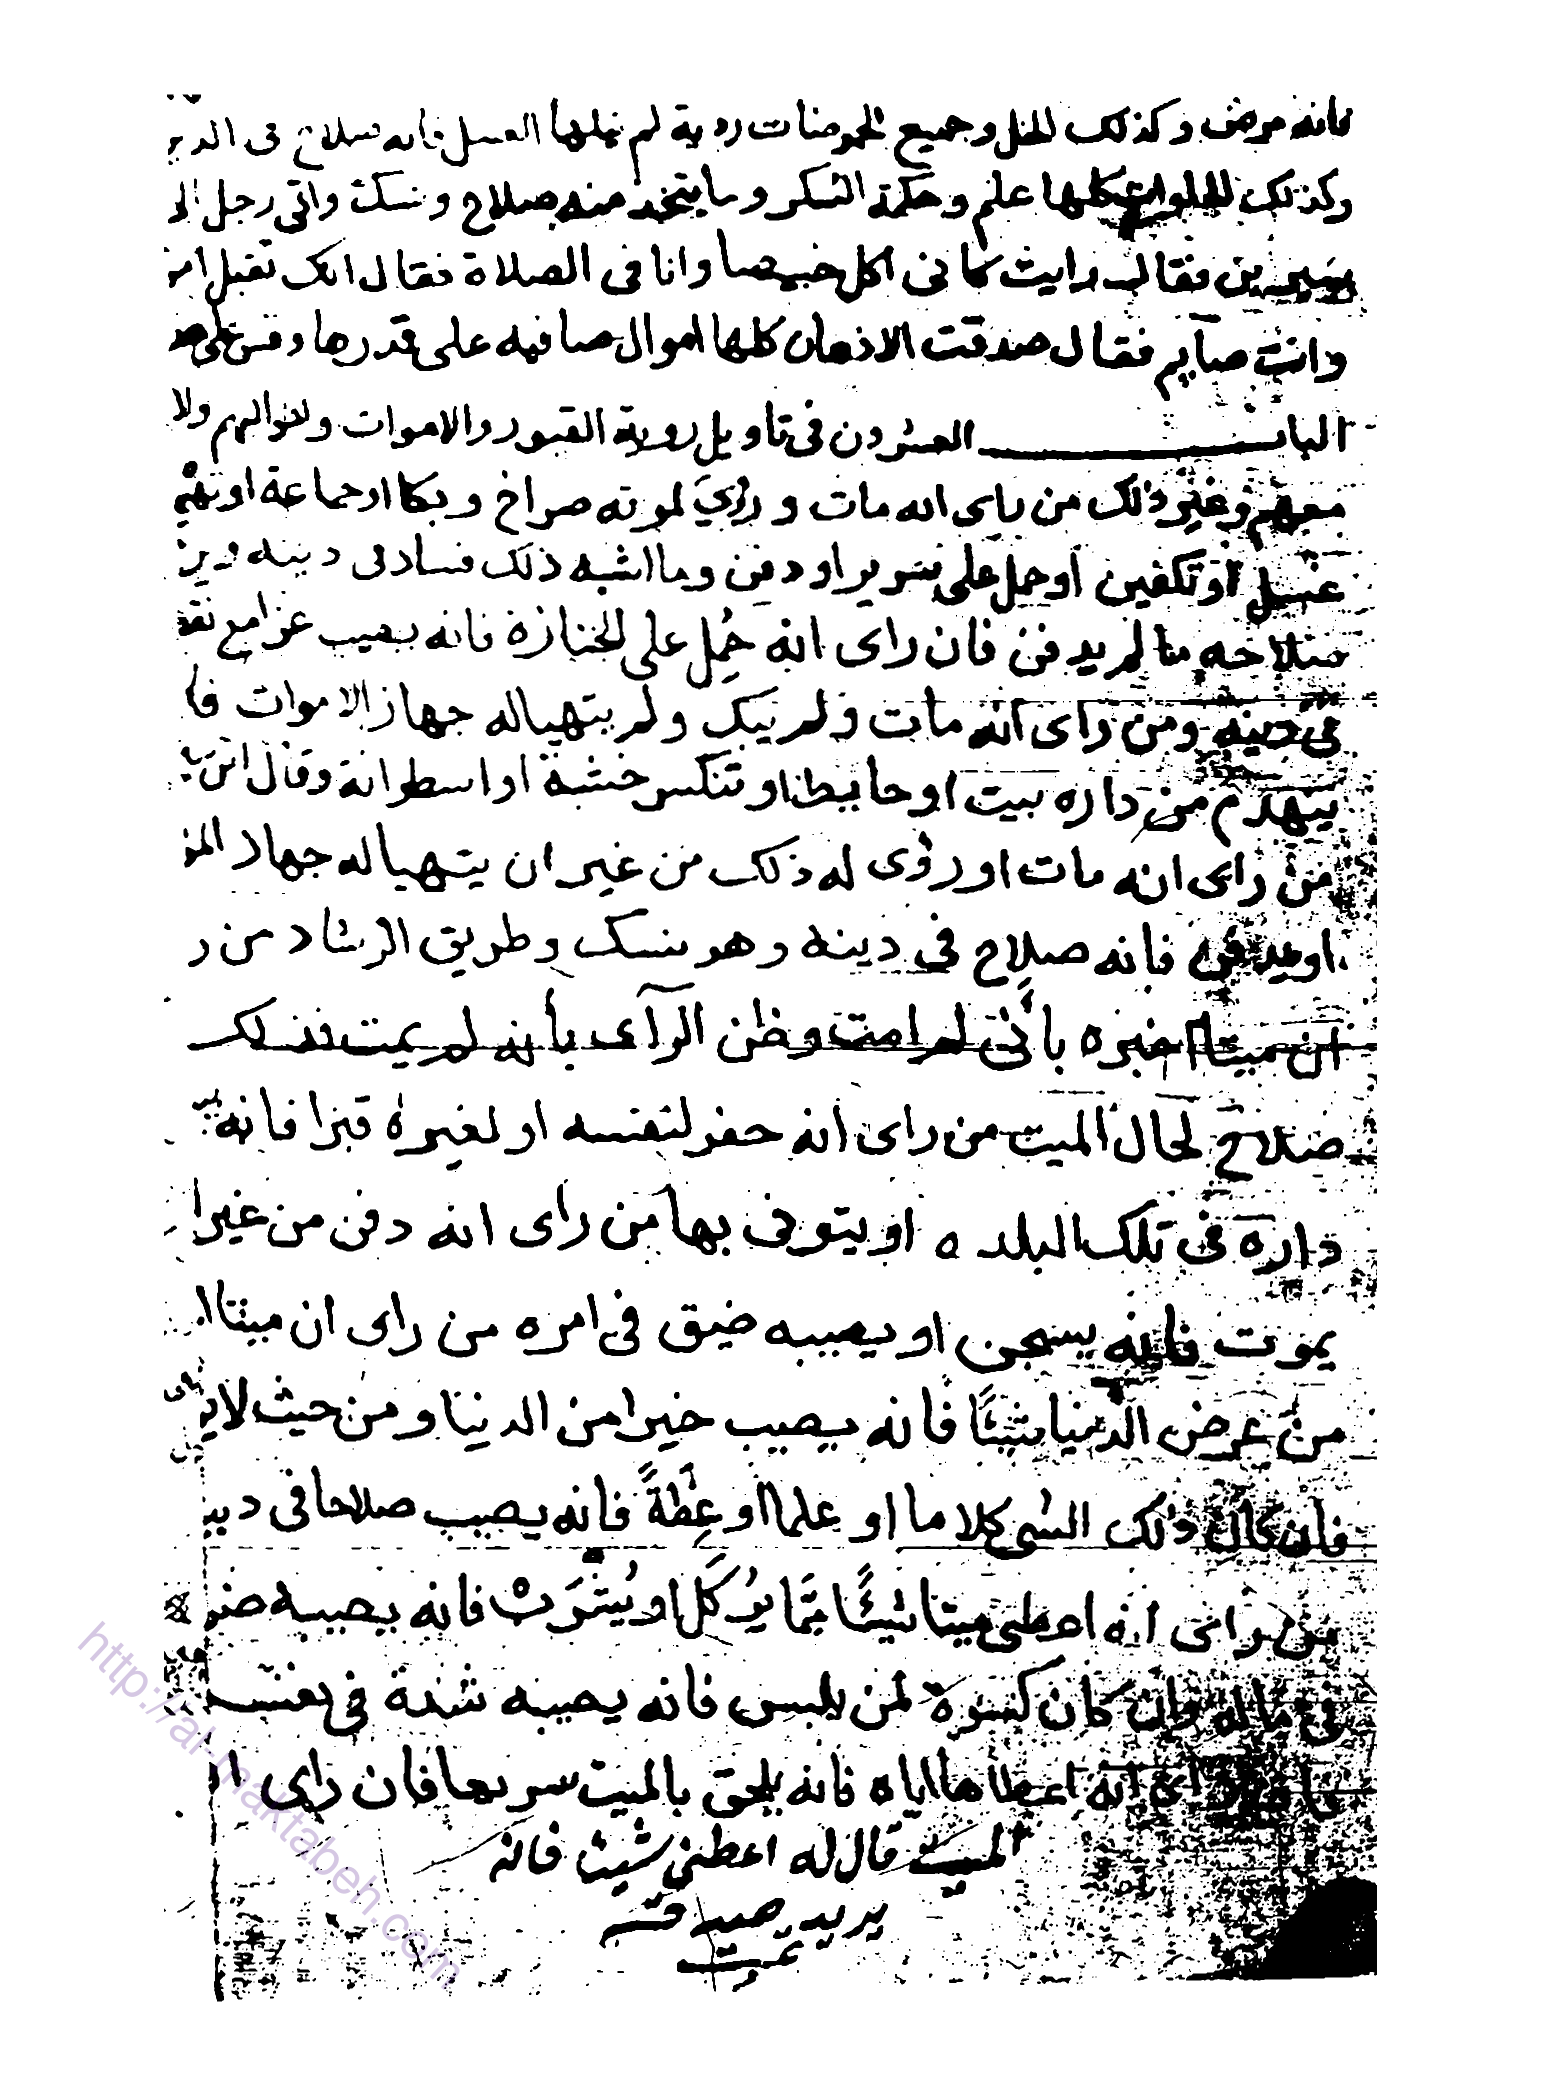 فانه مرض وكذلك الخل وجميع الحموضات ردية لم العسل فانه صلاح فى الدين
وكذلك كلها علم وحكمة السكر وما يتخذ منه صلاح ونسك واتى رجل الى
سيرين فقال رايت كانى اكل خبيصا وانا فى الصلاة فقال انك تقبل امر
وانت صايم فقال صدقت الادهان كلها اموال صافيه على قدرها ومن
البـــــاب العشرون فى تاويل روية القبور والاموات واحوالهم ولا
معهم وغير ذلك من راى انه مات و رؤي لموته صراخ وبكا او جماعة او
غسل او تكفين او حمل على سرير او دفن وما اشبه ذلك فساد فى دينه
صلاحه ما لم يدفن فان راى انه حُمِل على الجنازة فانه يصيب عزا مع نقص
فى دينه ومن راى انه مات ولم يبك ولم يتهيا له جهاز الاموات فا
ينهدم من داره بيت او حايط او تنكسر خشبة او اسطوانة وقال
من راى انه مات او رؤى له ذلك من غير ان يتهيا له جهاز المو
او يدفن فانه صلاح فى دينه وهو نسك وطريق الرشاد من ر
ان ميتا اخبره بأنى لم امت وظن الرآى بأنه لم يمت فذلك
صلاح لحال الميت من راى انه حفر لنفسه او لغيره قبرا فانه
داره فى تلك البلده او يتوفى بها من راى انه دفن من غير ا
يموت فانه يسجن او يصيبه ضيق فى امره من راى ان ميتا
من عرض الدنيا شيئًا فانه يصيب خيرا من الدنيا ومن حيث لا
فان كان ذلك الشى كلاما او علما او عِظةً فانه يصيب صلاحا فى دينه
من راى انه اعطى ميتا شيئًا مما يُوكَل او يُشرَبْ فانه يصيبه ضر
فى ماله وان كان كسوة لمن يلبس فانه يصيبه شدة فى نفسه
انه اعطاها اياه فانه يلحق بالميت سريعا فان راى ان
الميت قال له اعطنى شيئ فانه
يريد صدقه
تمت
http://al-maktabeh.com